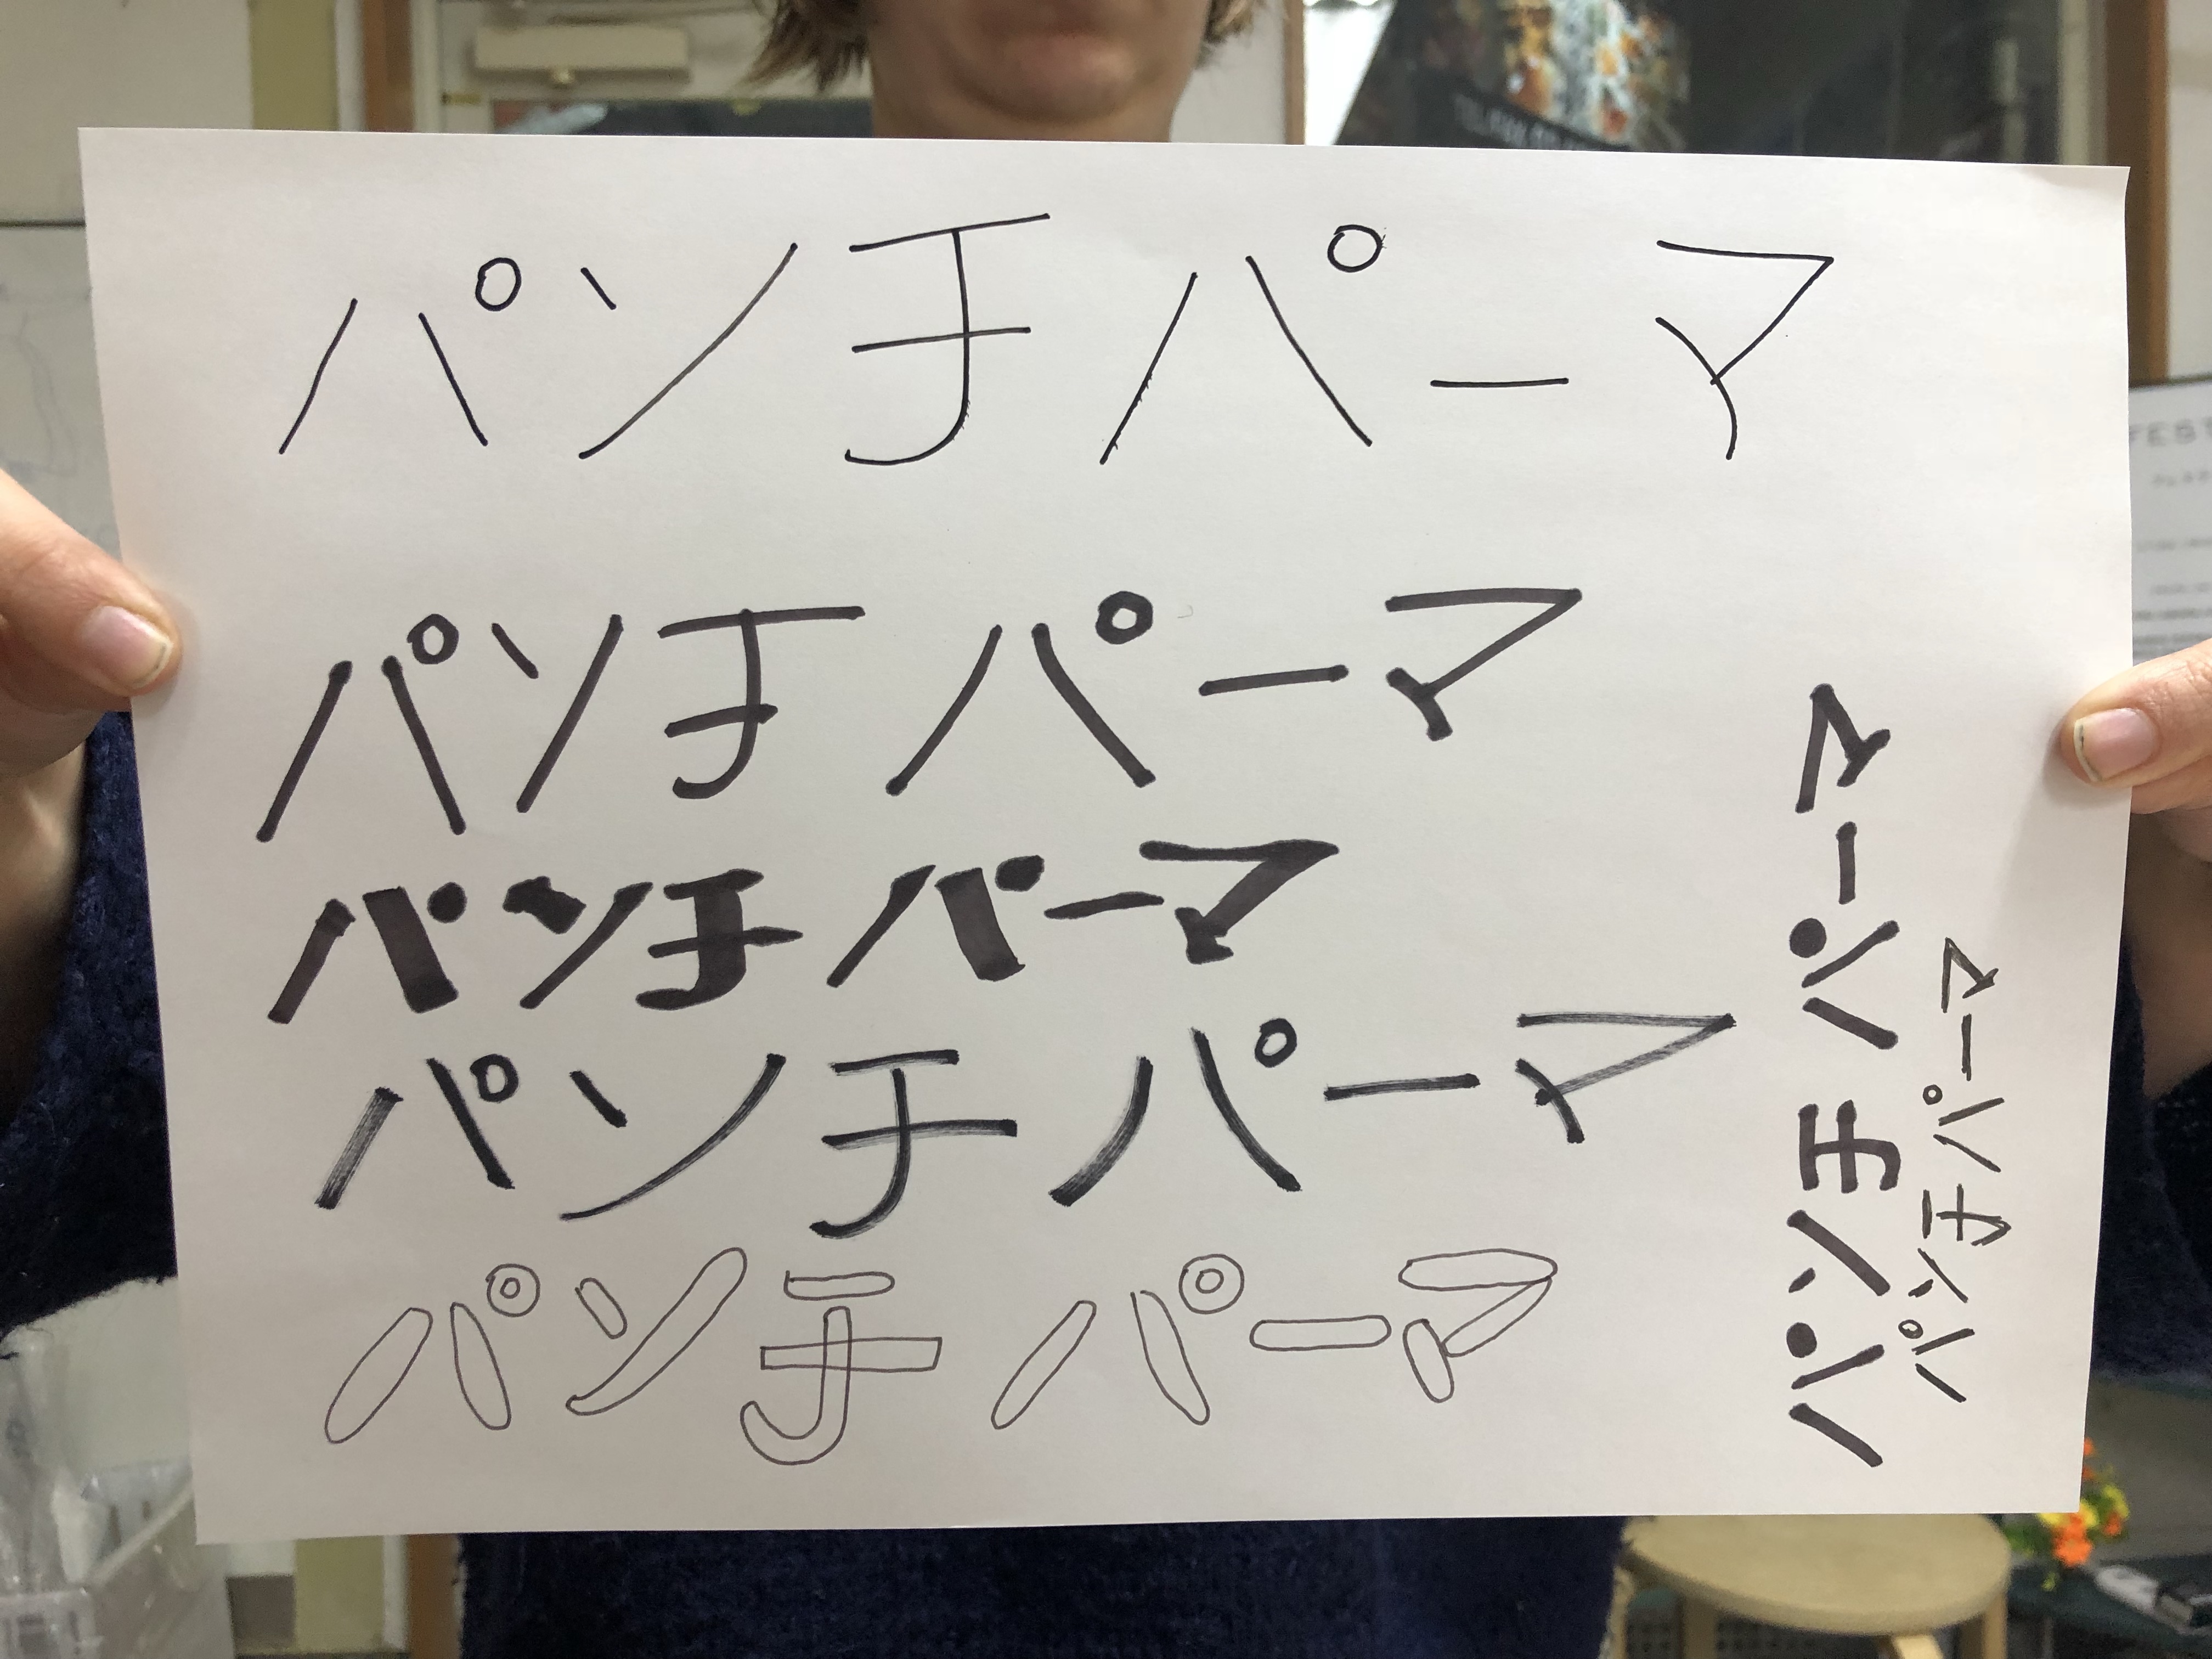 パンチパーマ
パンチパーマ
パンチパーマ
パンチパーマ
パンチパーマ
パンチパーマ
パンチパーマ